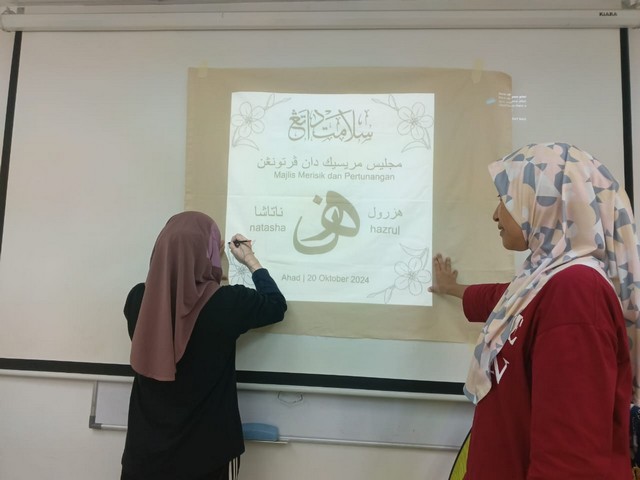 سلامت داتڠ
مجليس مريسيك دان ڤرتونڠن
Majlis Merisik dan Pertunangan
ناتاشا
natasha
هزرول
hazrul
Ahad | 20 Oktober 2024